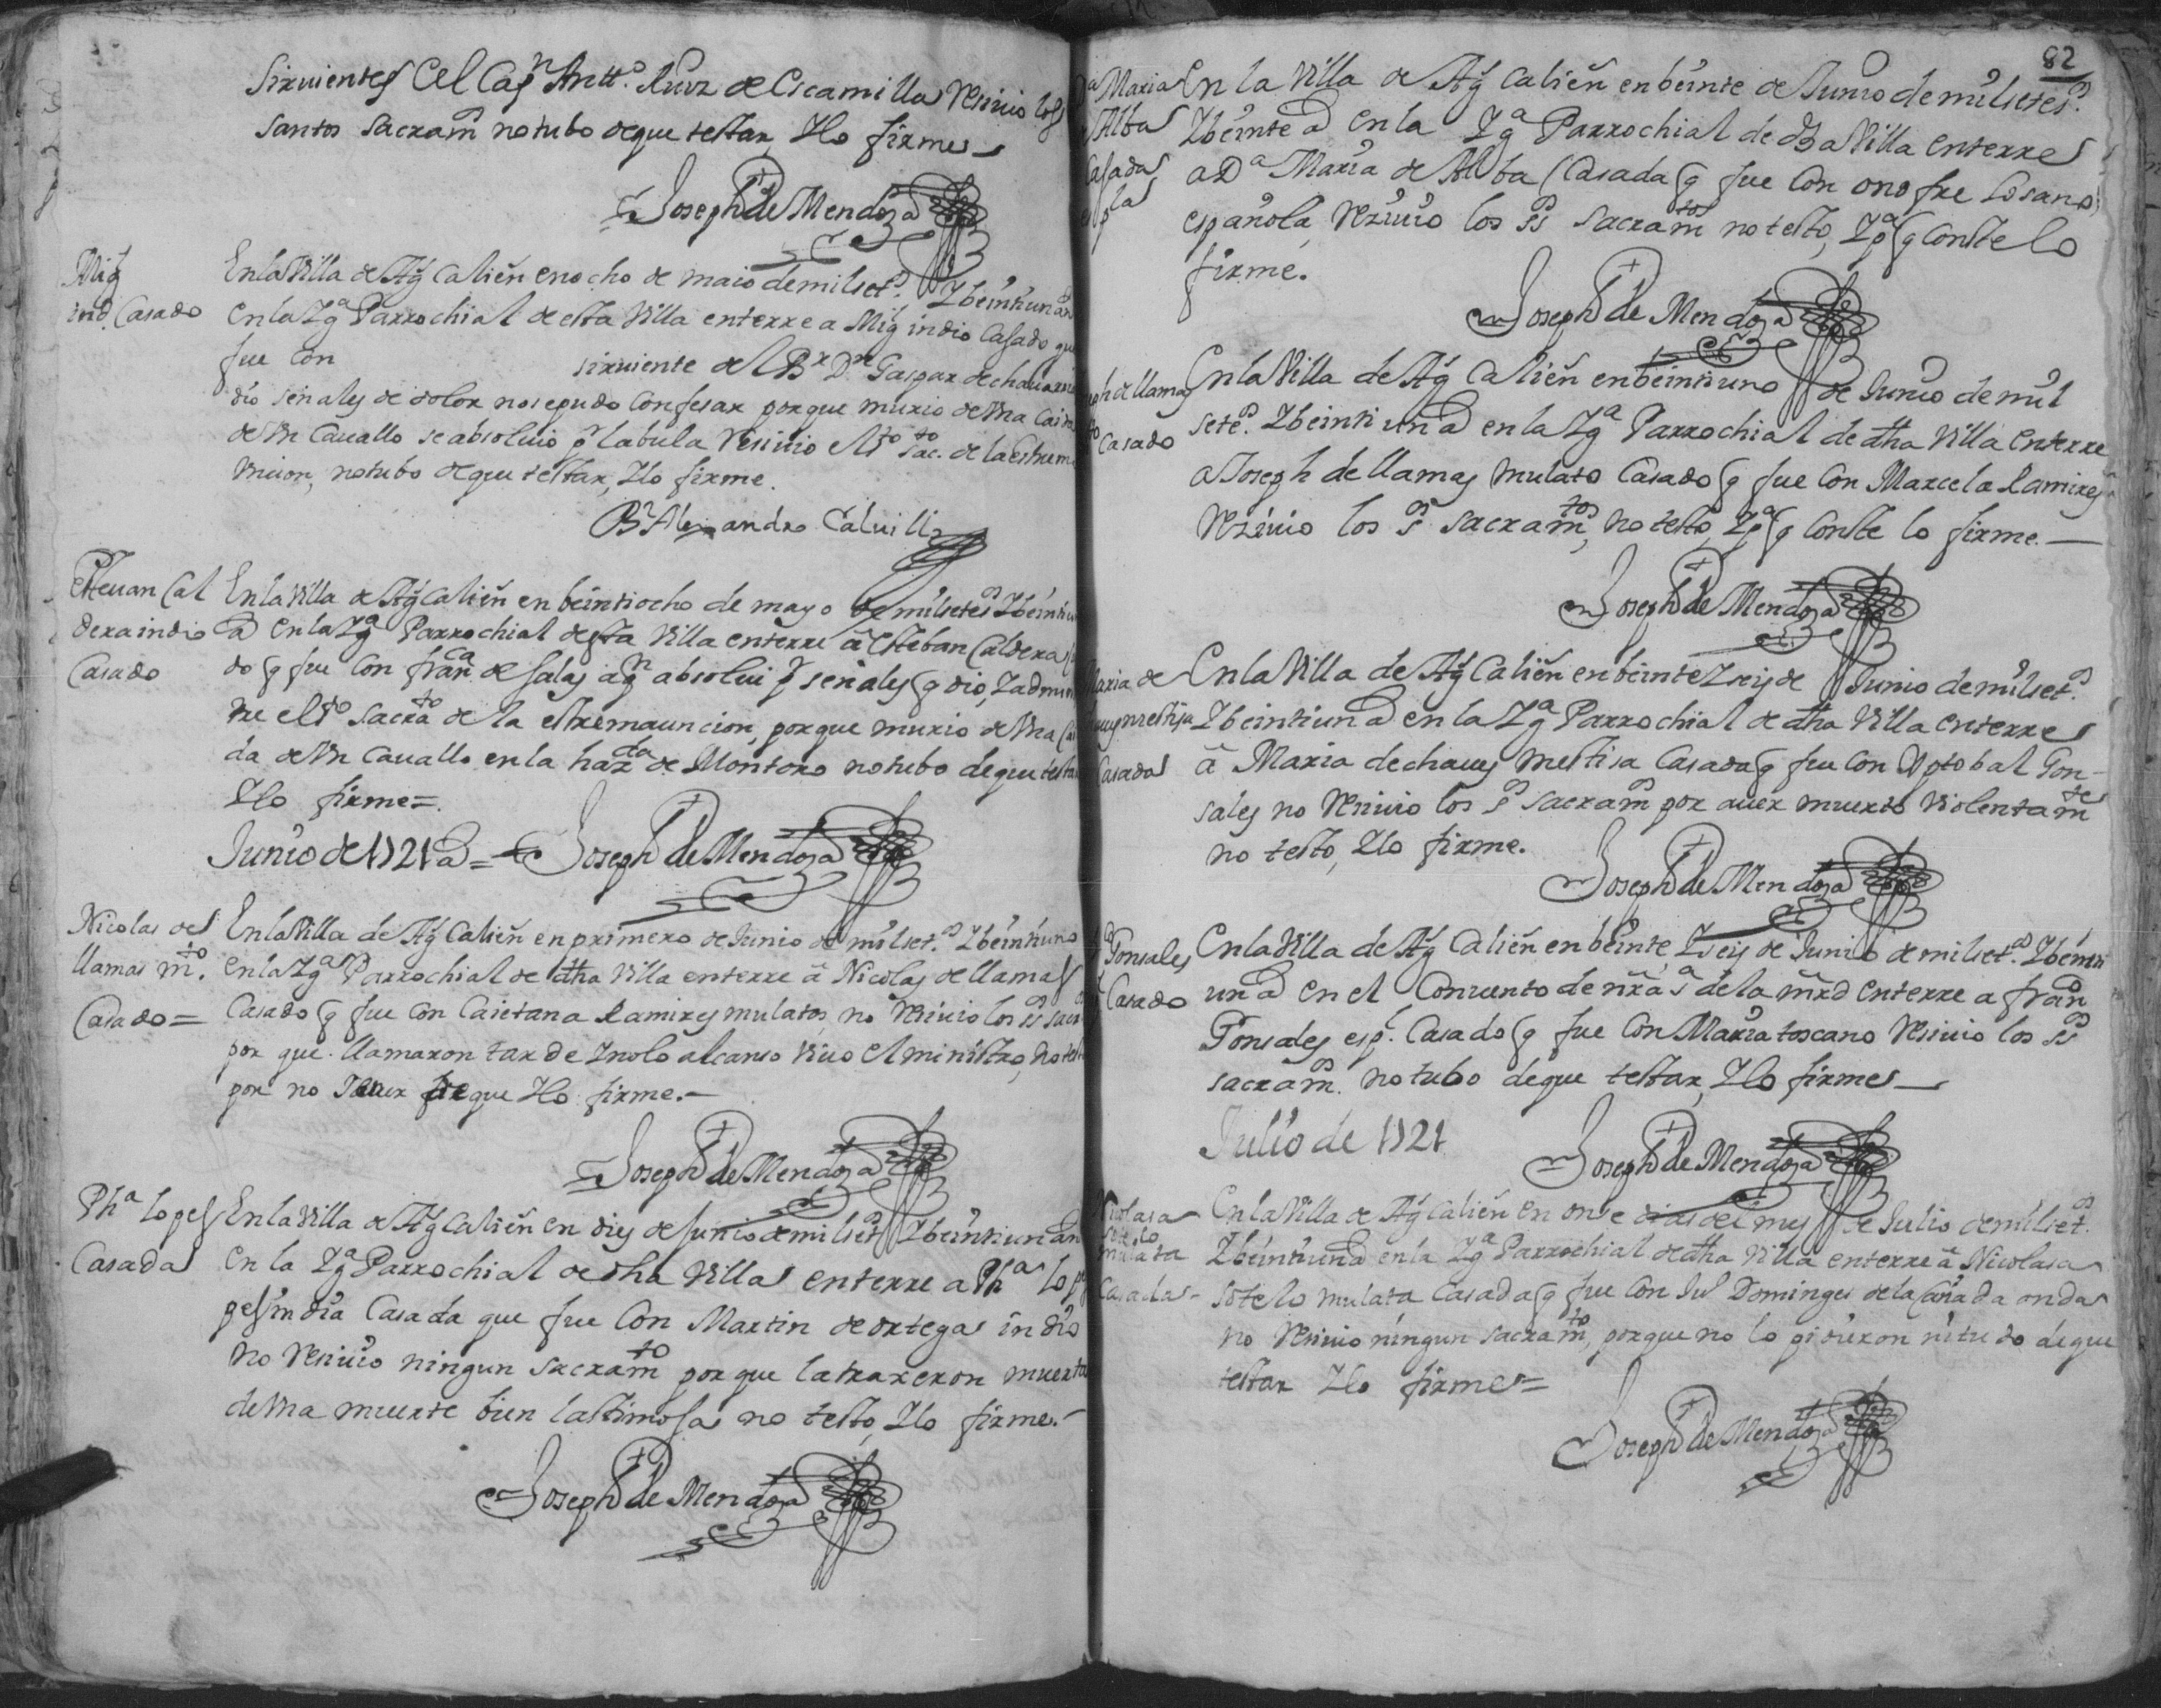 sirvientes del Cap.n Antt.o Ruiz de Escamilla resivio los
santos sacram.os no tubo de que testar, Ylo firme
Joseph de Mendoza
Mig.l
ind.o Casado
En la Villa de Ag.s Calien.s en ocho de maio de mil set.os Ybeintiun an
en la Yg.a Parrochial de esta Villa enterre a Mig.l indio Casado que
fue con sirviente del B.r D.n Gaspar de
dio señales de dolor no se pudo Confesar porque murio de Vna Caida
de Vn Cavallo se absolvio p.r la bula resivio el s.to sac.to de la estrema
Vncion, no tubo de que testar, Ylo firme.
B.r Alexandro Calvillo
Estevan Cal
dera indio
Casado
En la Villa de Ag.s Calien.s en beintiocho de mayo de mil setes.os Ybeintiun
a.s en la Yg.a Parrochial desta Villa enterre a Esteban Caldera
do q fue con fran.ca de salas a q.n absolvi p.r señales q dio, Yadminis
tre el s.to sacra.to de la estremauncion, porque murio de Vna Cai
da de Vn Cavallo en la haz.da de Montoro no tubo de que testar
Ylo firme=
Junio de 1721 a.s = Joseph de Mendoza
Nicolas de
llamas m.to
Casado=
En la Villa de Ag.s Calien.s en primero de Junio de mil set.os Ybeintiuno
en la Yg.a Parrochial de dha Villa enterre a Nicolas de llamas
Casado q fue con Caietana Ramires mulatos, no resivio los s.s sacra
por que llamaron tarde Ynolo alcanso Vivo el ministro, no testo
por no tener de que Ylo firme.
Joseph de Mendoza
Ph.a lopes
Casada
En la Villa de Ag.s Calien.s en dies de Junio de mil set.os Ybeintiun an
en la Yg.a Parrochial de dha Villa enterre a Ph.a lo
pes india Casada que fue Con Martin de ortega indio
no resivio ningun sacram.to por que la traxeron muerta
de Vna muerte bien lastimosa no testo, Ylo firme.
Joseph de Mendoza
82
D.a Maria
Alba
Casada
esp.la
En la Villa de Ag.s Calien.s en beinte de Junio de mil setes.os
Ybeinte a.s en la Yg.a Parrochial de dha Villa enterre
a D.a Maria de Alba Casada q fue Con onofre Losano
española, rezivio los s.s sacram.tos no testo, Yp.a q Conste lo
firme.
Joseph de Mendoza
eph de llamas
to Casado
En la Villa de Ag.s Calien.s en beintiuno de Junio de mil
sete.os Ybeintiun a.s en la Yg.a Parrochial de dha Villa enterre
a Joseph de llamas mulato Casado q fue Con Marcela Ramires
rezivio los s.s sacram.tos, no testo, Yp.a q Conste lo firme.
Joseph de Mendoza
Maria de
mestisa
Casada
En la Villa de Ag.s Calien.s en beinte Yseis de Junio de mil set.os
Ybeintiun a.s en la Yg.a Parrochial de dha Villa enterre
a Maria de chaves mestisa Casada q fue Con Xptobal Gon-
sales no resivio los s.s sacram.os por aver muerto violentam.te
no testo, Ylo firme.
Joseph de Mendoza
Gonsales
Casado
En la Villa de Ag.s Calien.s en beinte, Yseis de Junio de mil set.os Ybeinti
un a.s en el Convento de nra s.a de la mrd enterre a fran.co
Gonsales esp.l Casado q fue Con Maria toscano resivio los s.s
sacram.os no tubo de que testar, Ylo firme
Julio de 1721
Joseph de Mendoza
Nicolasa
sotelo
mulata
Casada-
En la Villa de Ag.s Calien.s en onse dias del mes de Julio de mil set.os
Ybeintiun a.s en la Yg.a Parrochial de dha Villa enterre a Nicolasa
sotelo mulata Casada q fue Con Ju.o Domingues de la Cañada onda
no resivio ningun sacram.to, porque no lo pidieron ni tubo de que
testar Ylo firme=
Joseph de Mendoza